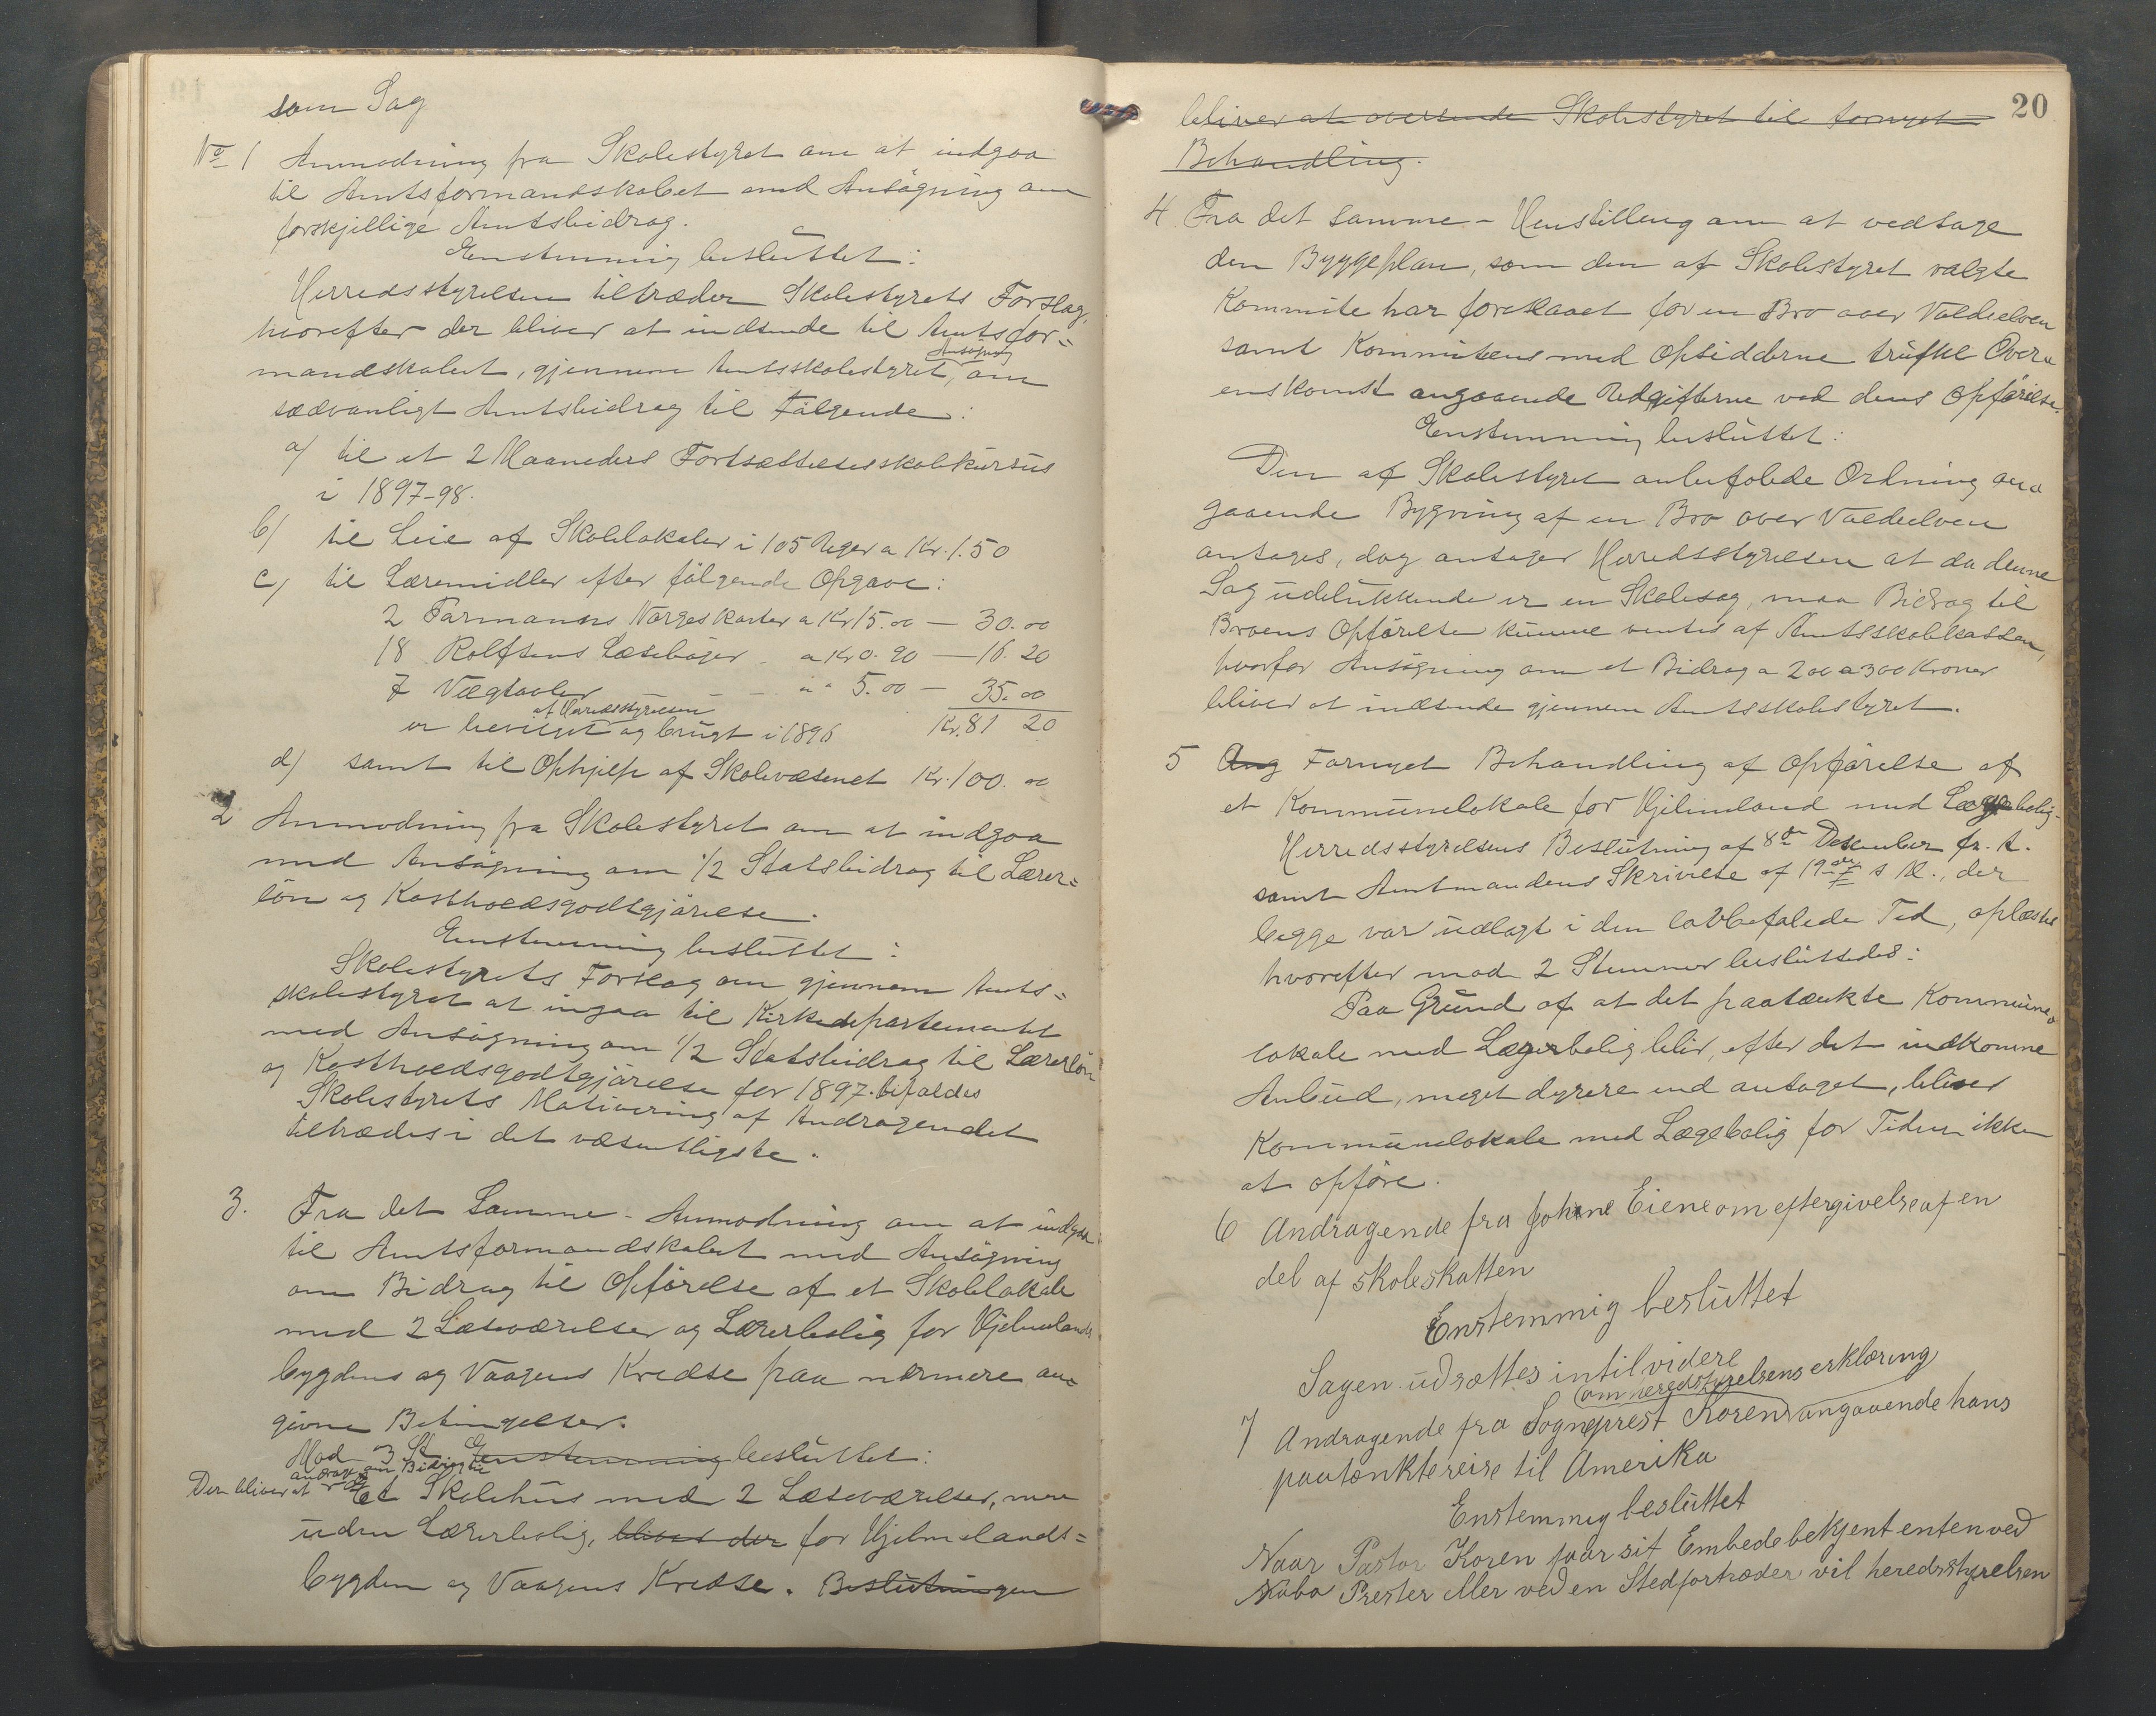 som Sag
No 1 Anmodning fra Skolestyret om at indgaa
til Amtsformandskabet med Ansögning om
forskjellige Amtsbidrag.
Enstemmig besluttet:
Herredsstyrelsen tiltræder Skolestyrets Forslag,
hvorefter der bliver at indsende til Amtsfor=
Ansögning
mandskabet, gjennem Amtsskolestyret, om
sædvanligt Amtsbidrag til Fölgende:
a/ til et 2 Maaneders Fortsættelsesskolekursus
i 1897-98.
b/ til Leie af Skolelokaler i 105 Uger a Kr. 1.50
c/ til Læremidler efter fölgende Opgave:
2 Farmanns Norges Karter a Kr 15.00 — 30.00
18 Rolfsens Læseböger - a Kr 0.90 — 16.20
7 Vægtavler - - " " 5.00 — 35.00
af Herredsstyrelsen
er bevilget og brugt i 1896 Kr. 81 20
d/ samt til Ophjelp af Skolevæsenet Kr. 100.00
2 Anmodning fra Skolestyret om at indgaa
med Ansögning om 1/2 Statsbidrag til Lærer=
lön og Kostholdsgodtgjörelse.
Enstemmig besluttet:
Skolestyrets Forslag om gjennem Amts=
skolestyret at ingaa til Kirkedepartementet
med Ansögning om 1/2 Statsbidrag til Lærerlön
og Kostholdsgodtgjörelse for 1897. bifaldes
Skolestyrets Motivering af Andragendet
tiltrædes i det væsentligste.
3. Fra det Samme - Anmodning om at indgaa
til Amtsformandskabet med Ansögning
om Bidrag til Opförelse af et Skolelokale
med 2 Læseværelser og Lærerbolig for Hjelmelands
bygdens og Vaagens Kredse paa nærmere an=
givne Betingelser.
Mod 3 St. Enstemmig besluttet:
andrage om Bidrag til
Der bliver at Et Skolehus med 2 Læseværelser, men
uden Lærerbolig, bliver der for Hjelmelands=
bygden og Vaagens Kredse. Beslutningen
20
bliver at oversende Skolestyret til fornyet
Behandling.
4 Fra det samme - Henstilling om at vedtage
den Byggeplan, som den af Skolestyret valgte
Kommite har foreslaaet for en Bro over Valdeelven
samt Kommiteens med Opsidderne trufne Over=
enskomst angaaende Udgifterne ved dens Opförelse.
Enstemmig besluttet:
Den af Skolestyret anbefalede Ordning an=
gaaende Bygning af en Bro over Valdeelven
antages, dog antager Herredsstyrelsen at da denne
Sag udelukkende er en Skolesag, maa Bidrag til
Broens Opförelse kunne ventes af Amtsskolekassen,
hvorfor Ansögning om et Bidrag a 200 a 300 Kroner
bliver at indsende gjennem Amtsskolestyret.
5 Ang Fornyet Behandling af Opförelse af
et Kommunelokale for Hjelmeland med Lægebolig-
Herredsstyrelsens Beslutning af 8de Desember f. A.
samt Amtmandens Skrivelse af 19de s. M., der
begge var udlagt i den lovbefalede Tid, oplæstes
hvorefter mod 2 Stemmer besluttedes:
Paa Grund af at det paatænkte Kommune=
lokale med Lægerbolig blir, efter det indkomne
Anbud, meget dyrere end antaget, bliver
Kommunelokale med Lægebolig for Tiden ikke
at opföre.
6 Andragende fra Johane Eiene om eftergivelse af en
del af skoleskatten
Enstemmig besluttet
Sagen udsættes intil videre
om heredstyrelsens erklæring
7 Andragende fra Sogneprest Koren angaaende hans
paatænkte reise til Amerika
Enstemmig besluttet
Naar Pastor Koren faar sit Embede betjent enten ved
Nabo Prester eller ved en Stedfortræder vil heredsstyrelsen